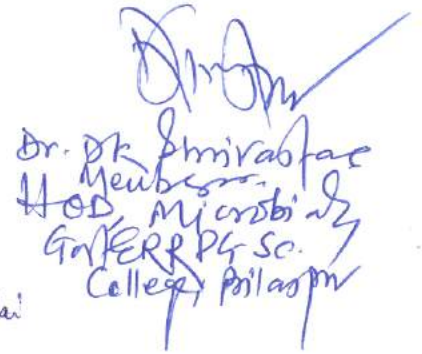 Dr. DK Shrivastava
Member.
HOD, Microbiology
Govt ERR PG Sc.
College, Bilaspur